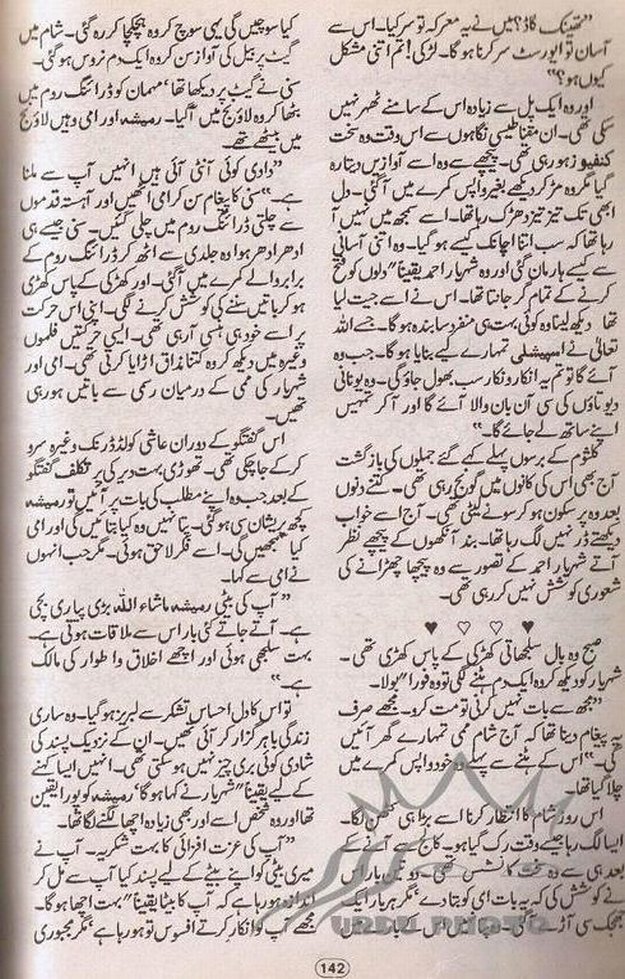 ”تھینک گاڈ؟ میں نے یہ معرکہ تو سر کیا۔ اس سے
آسان تو ایورسٹ سر کرنا ہوگا۔ لڑکی! تم اتنی مشکل
کیوں ہو؟“
اور وہ ایک پل سے زیادہ اس کے سامنے ٹھہر نہیں
سکی تھی۔ ان مقناطیسی نگاہوں سے اس وقت وہ سخت
کنفیوز ہو رہی تھی۔ پیچھے سے وہ اسے آوازیں دیتا رہ
گیا مگر وہ مڑ کر دیکھے بغیر واپس کمرے میں آگئی۔ دل
ابھی تک تیز تیز دھڑک رہا تھا۔ اسے سمجھ میں نہیں آ
رہا تھا کہ سب اتنا اچانک کیسے ہو گیا۔ وہ اتنی آسانی
سے کیسے ہار مان گئی اور وہ شہریار احمد یقیناً ”دلوں کو فتح
کرنے کے تمام گر جانتا تھا۔ اس نے اسے جیت لیا
تھا۔ دیکھ لینا وہ کوئی بہت ہی منفرد سا بندہ ہوگا۔ جسے اللہ
تعالیٰ نے اسپیشلی تمہارے لیے بنایا ہوگا۔ جب وہ
آئے گا تو تم یہ انکار ونکار سب بھول جاؤ گی۔ وہ یونانی
دیوتاؤں کی سی آن بان والا آئے گا اور آ کر تمہیں
اپنے ساتھ لے جائے گا۔“
کلثوم کے برسوں پہلے کہے گئے جملوں کی بازگشت
آج بھی اس کی کانوں میں گونج رہی تھی۔ کتنے دنوں
بعد وہ پر سکون ہو کر سونے لیٹی تھی۔ آج اسے خواب
دیکھتے ڈر نہیں لگ رہا تھا۔ بند آنکھوں کے پیچھے نظر
آتے شہریار احمد کے تصور سے وہ پیچھا چھڑانے کی
شعوری کوشش نہیں کر رہی تھی۔
♥ ♡ ♡ ♥
صبح وہ بال سلجھاتی کھڑکی کے پاس کھڑی تھی۔
شہریار کو دیکھ کر وہ ایک دم ہٹنے لگی تو وہ فوراً ”بولا۔
”مجھ سے بات نہیں کرنی تو مت کرو۔ مجھے صرف
یہ پیغام دینا تھا کہ آج شام ممی تمہارے گھر آئیں
گی۔“ اس کے ہٹنے سے پہلے وہ خود واپس کمرے میں
چلا گیا تھا۔
اس روز شام کا انتظار کرنا اسے بڑا ہی کٹھن لگا۔
ایسا لگ رہا جیسے وقت رک گیا ہو۔ کالج سے آنے کے
بعد ہی سے وہ سخت کانشس تھی۔ دو تین بار اس
نے کوشش کی کہ یہ بات امی کو بتا دے، مگر ہر بار ایک
جھجک سی آڑے آگئی۔ اس کے بارے میں
کیا سوچیں گی یہی سوچ کر وہ ہچکچا کر رہ گئی۔ شام میں
گیٹ پر بیل کی آواز سن کر وہ ایک دم نروس ہو گئی۔
سنی نے گیٹ پر دیکھا تھا، مہمان کو ڈرائنگ روم میں
بٹھا کر وہ لاؤنج میں آگیا۔ رمیشہ اور امی وہیں لاؤنج
میں بیٹھے تھے۔
”دادی کوئی آنٹی آئی ہیں انہیں آپ سے ملنا
ہے۔“ سنی کا پیغام سن کر امی اٹھیں اور آہستہ قدموں
سے چلتی ڈرائنگ روم میں چلی گئیں۔ سنی جیسے ہی
ادھر ادھر ہوا وہ جلدی سے اٹھ کر ڈرائنگ روم کے
برابر والے کمرے میں آگئی۔ اور کھڑکی کے پاس کھڑی
ہو کر باتیں سننے کی کوشش کرنے لگی۔ اپنی اس حرکت
پر اسے خود ہی ہنسی آ رہی تھی۔ ایسی حرکتیں فلموں
وغیرہ میں دیکھ کر وہ کتنا مذاق اڑایا کرتی تھی۔ امی اور
شہریار کی ممی کے درمیان رسمی سے باتیں ہو رہی
تھیں۔
اس گفتگو کے دوران عاشی کولڈ ڈرنک وغیرہ سرو
کر کے جا چکی تھی۔ تھوڑی بہت دیر کی پر تکلف گفتگو
کے بعد جب وہ اپنے مطلب کی بات پر آئیں تو رمیشہ
کچھ پریشان سی ہو گئی۔ پتا نہیں وہ کیا بتائیں گی اور امی
کیا سمجھیں گی۔ اسے فکر لاحق ہوئی۔ مگر جب انہوں
نے امی سے کہا۔
”آپ کی بیٹی رمیشہ ماشاء اللہ بڑی پیاری بچی
ہے۔ آتے جاتے کئی بار اس سے ملاقات ہوتی ہے۔
بہت سلجھی ہوئی اور اچھے اخلاق و اطوار کی مالک
ہے۔“
تو اس کا دل احساس تشکر سے لبریز ہو گیا۔ وہ ساری
زندگی باہر گزار کر آئی تھیں۔ ان کے نزدیک پسند کی
شادی کوئی بری چیز نہیں ہو سکتی تھی۔ انہیں ایسا کہنے
کے لیے یقیناً ”شہریار نے کہا ہوگا، رمیشہ کو پورا یقین
تھا اور وہ شخص اسے اور بھی زیادہ اچھا لگنے لگا تھا۔
”آپ کی عزت افزائی کا بہت شکریہ۔ آپ نے
میری بیٹی کو اپنے بیٹے کے لیے پسند کیا آپ سے مل کر
اندازہ ہو رہا ہے کہ آپ کا بیٹا یقیناً ”بہت اچھا ہوگا۔
مجھے آپ کو انکار کرتے افسوس تو ہو رہا ہے، مگر مجبوری
URDU PHOTO
142